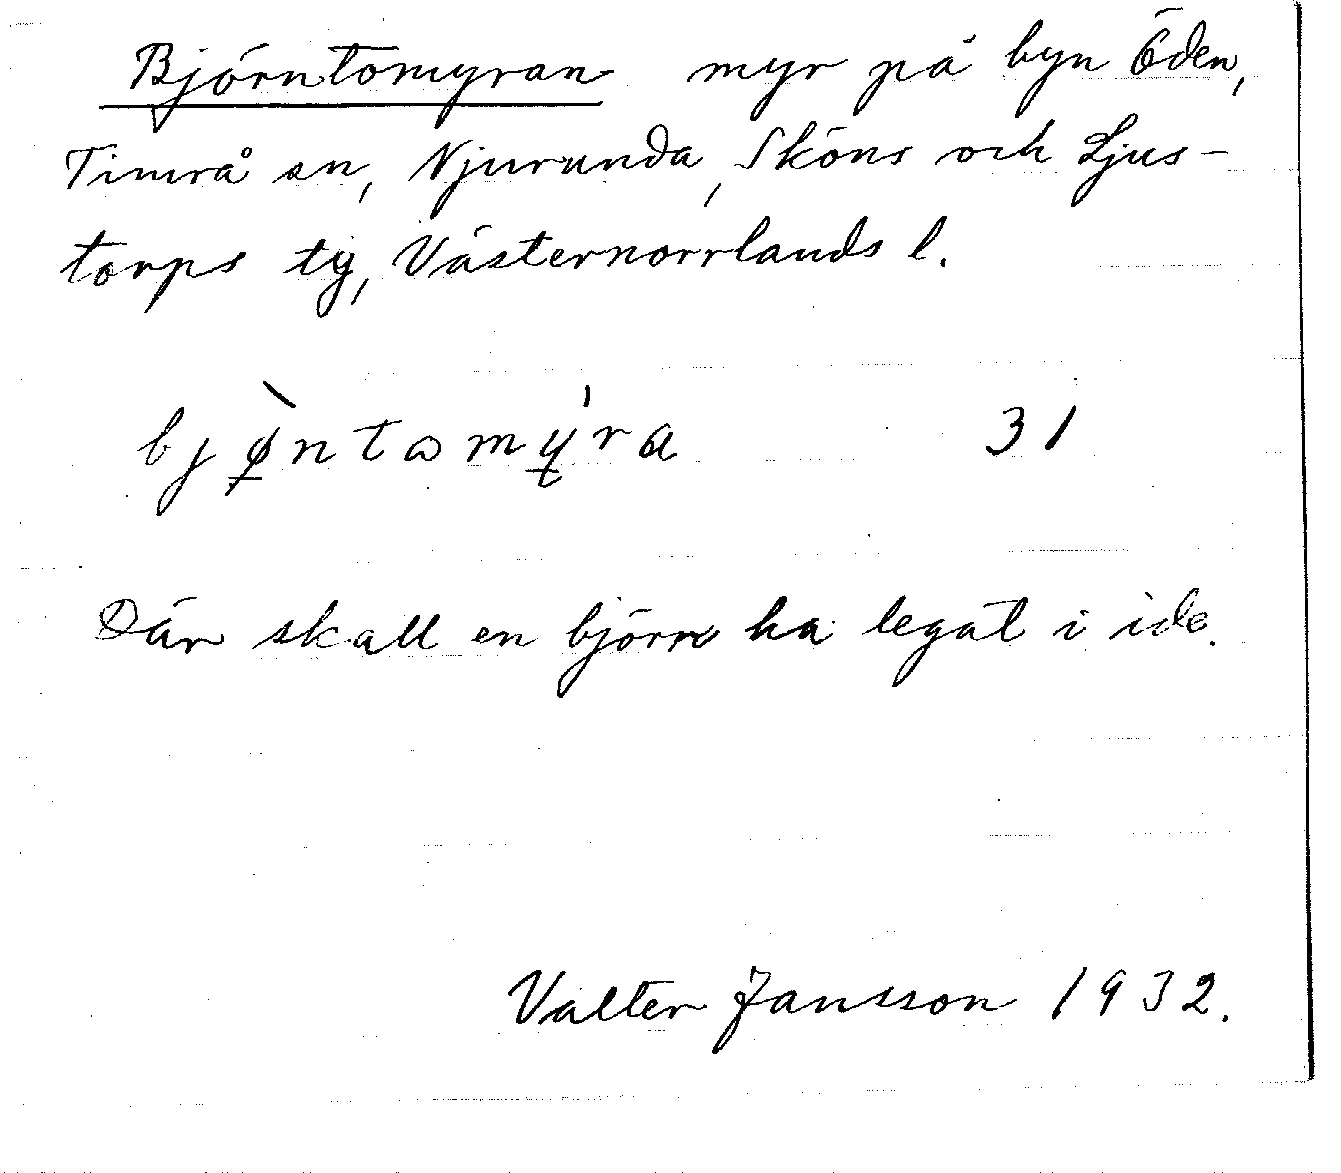 Björntomyran myr på byn Öden,
Timrå sn, Njurunda, Sköns och Ljus-
torps tg, Västernorrlands l.
bjø̠̀ntωmý̠ra 31
Där skall en björn ha legat i ide.
Valter Jansson 1932.